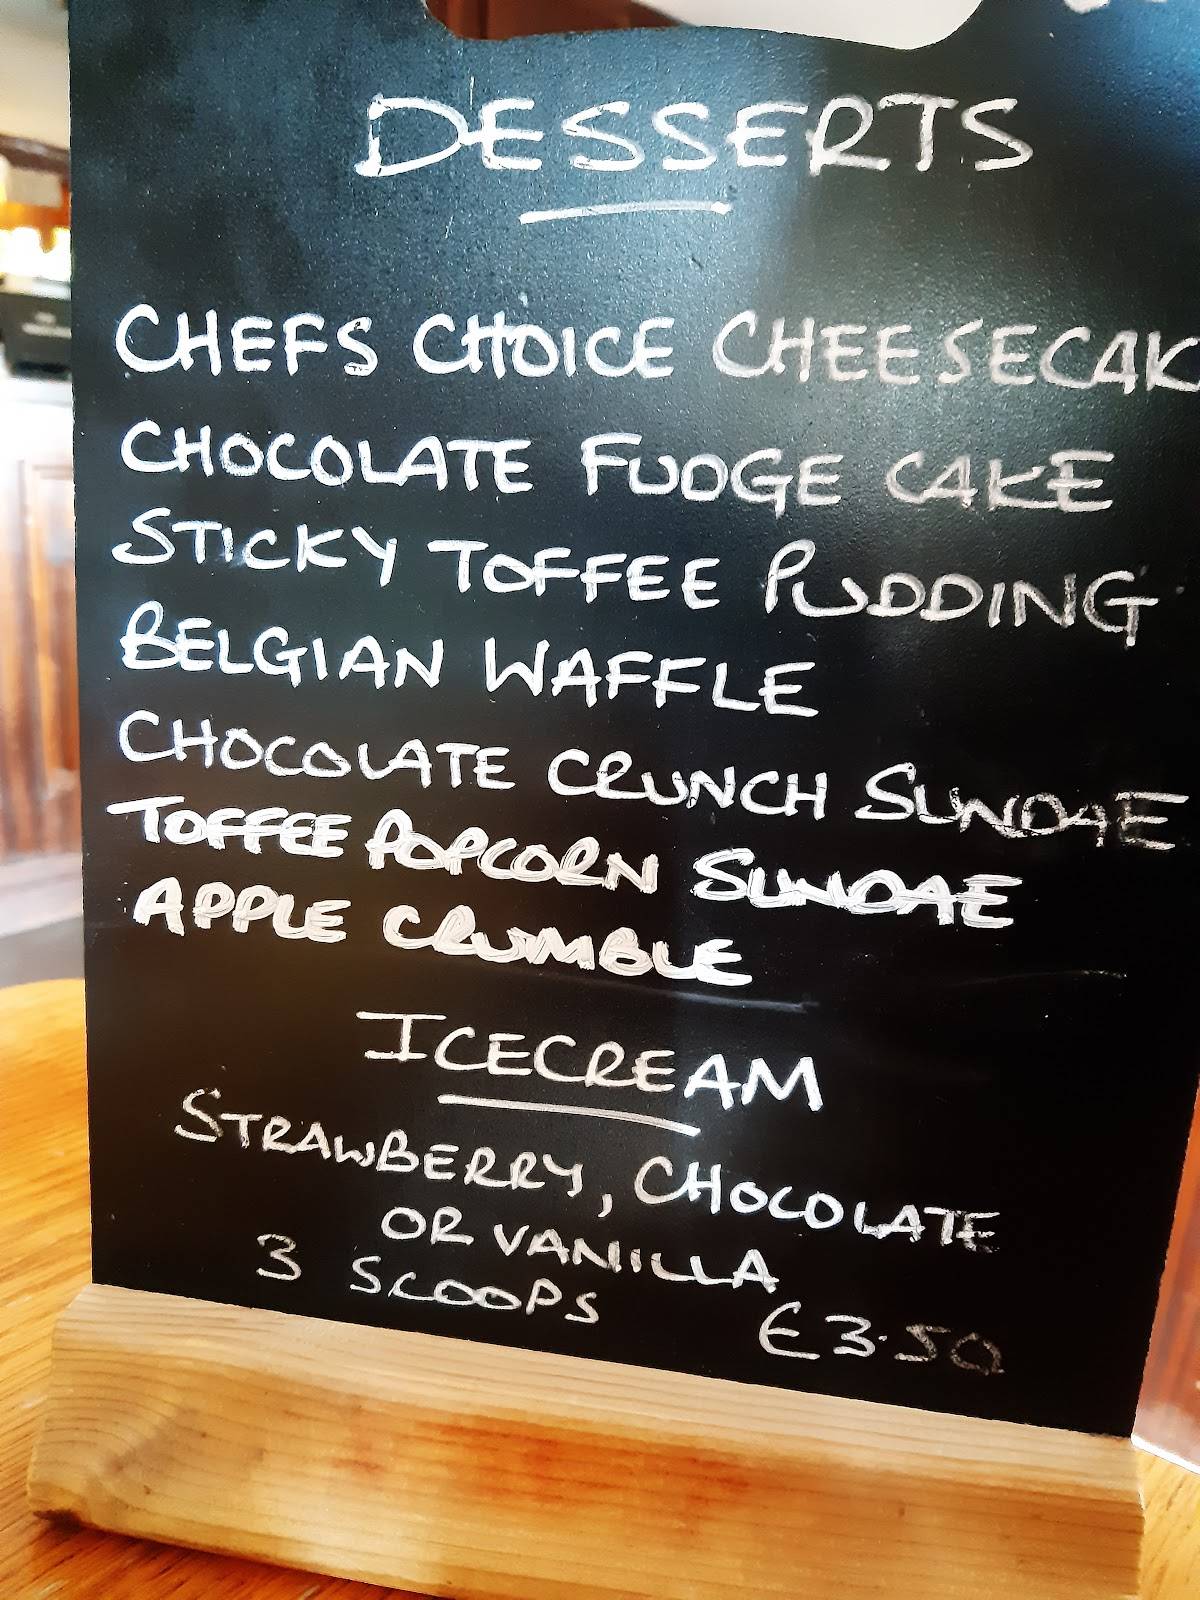 DESSERTS
CHEFS CHOICE CHEESECAK
CHOCOLATE FUDGE CAKE
STICKY TOFFEE PUDDING
BELGIAN WAFFLE
CHOCOLATE CRUNCH SUNDAE
TOFFEE POPCORN SUNDAE
APPLE CRUMBLE
ICECREAM
STRAWBERRY, CHOCOLATE
OR VANILLA
3 SCOOPS
€3.50